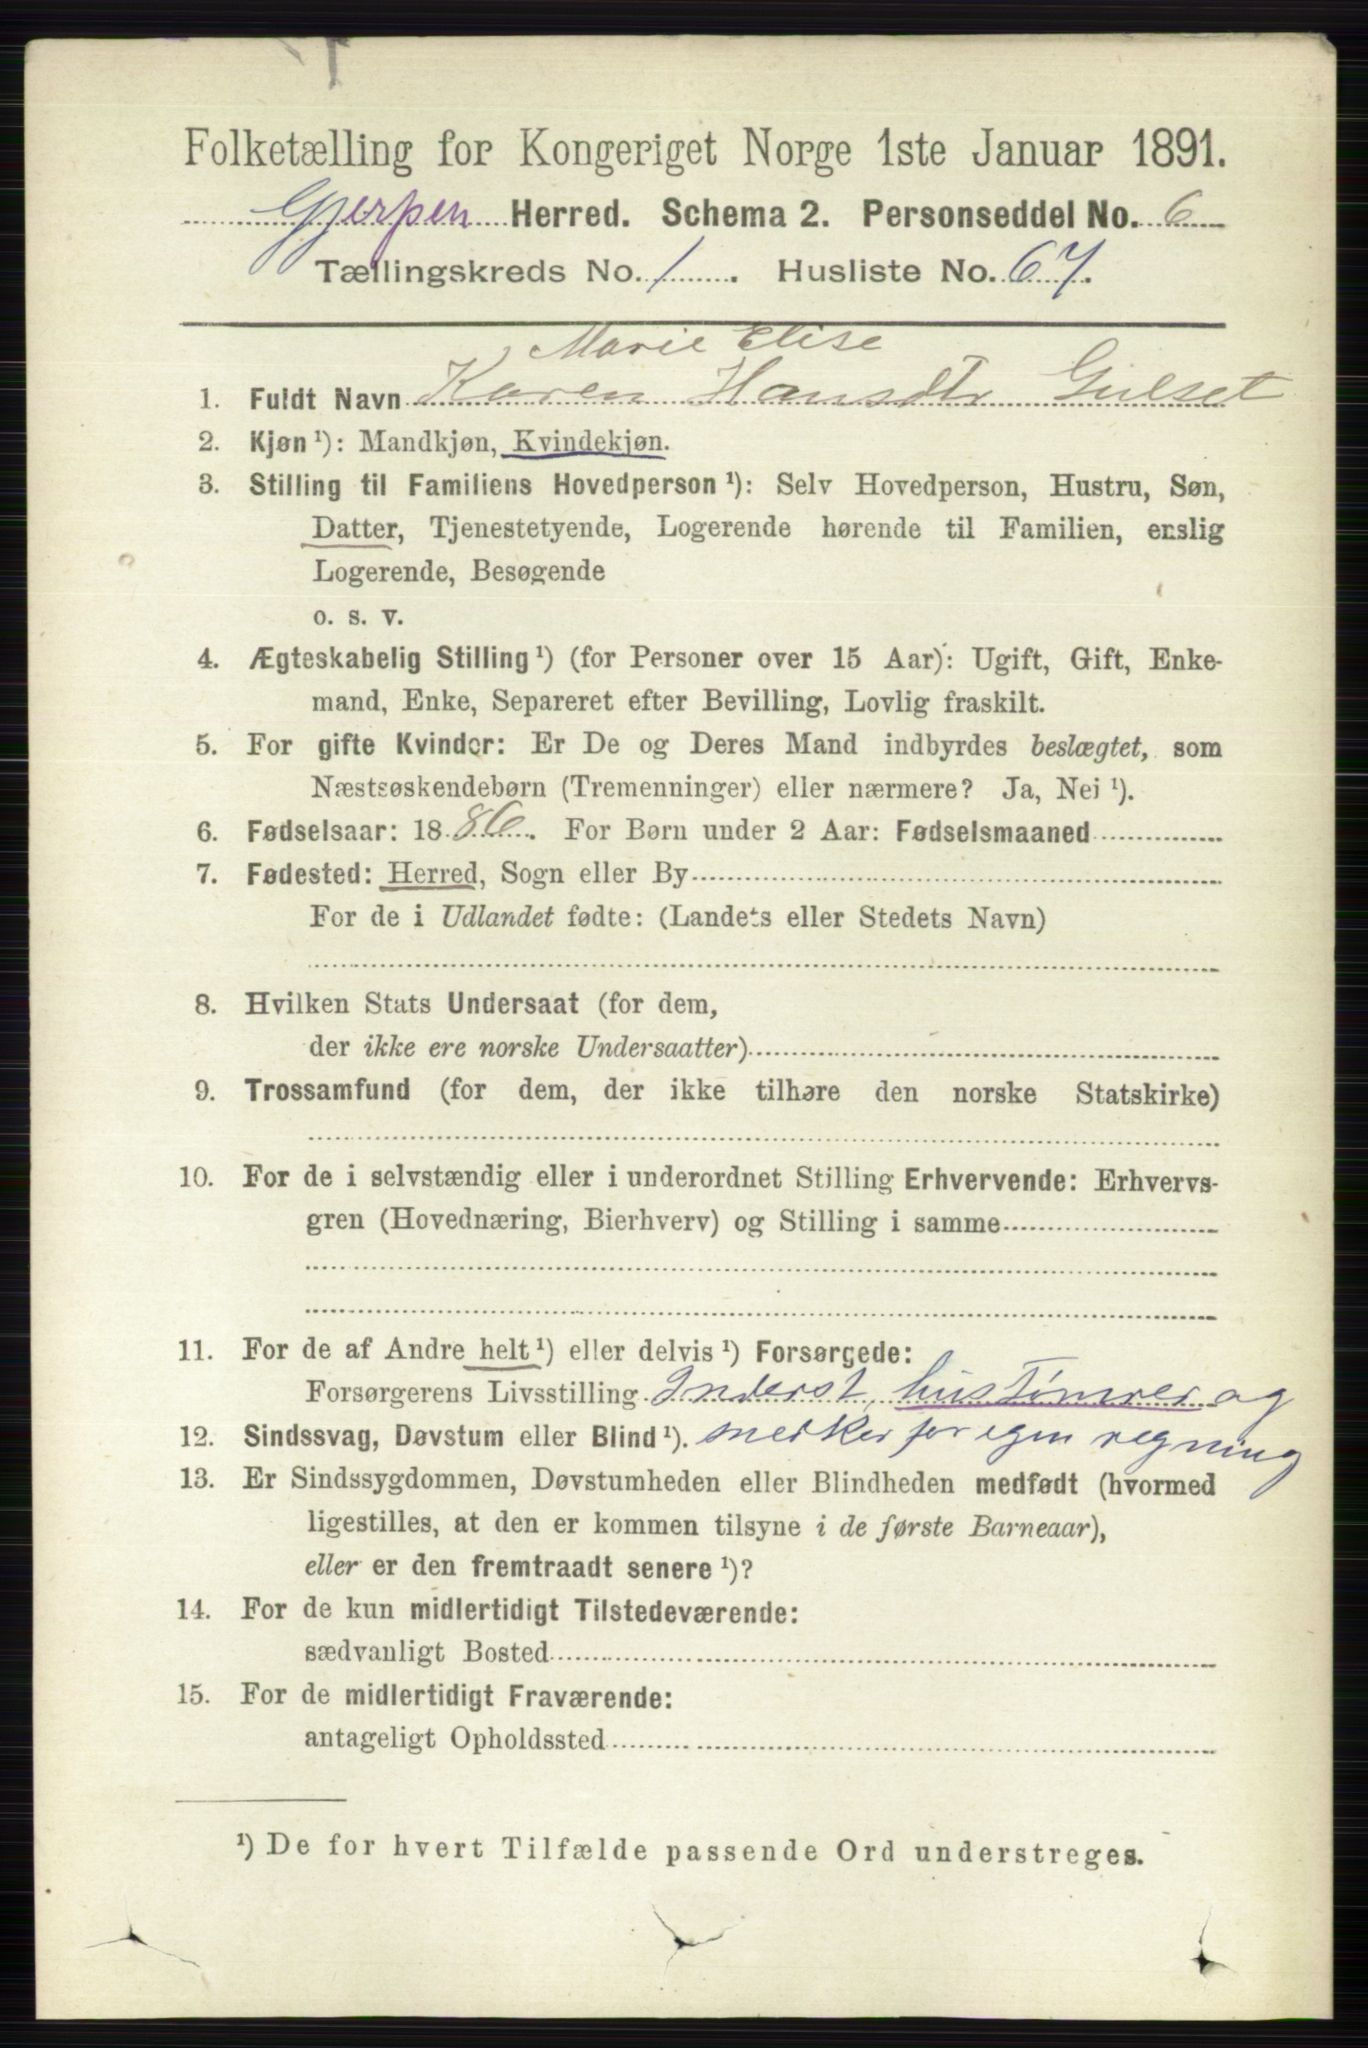 Folketælling for Kongeriget Norge 1ste Januar 1891.
Gjerpen Herred. Schema 2. Personseddel No. 6
Tællingskreds No. 1. Husliste No. 67.
Marie Elise
1. Fuldt Navn Karen Hansdtr Gulset
2. Kjøn ¹): Mandkjøn, Kvindekjøn.
3. Stilling til Familiens Hovedperson ¹): Selv Hovedperson, Hustru, Søn,
Datter, Tjenestetyende, Logerende hørende til Familien, enslig
Logerende, Besøgende
o. s. v.
4. Ægteskabelig Stilling ¹) (for Personer over 15 Aar): Ugift, Gift, Enke-
mand, Enke, Separeret efter Bevilling, Lovlig fraskilt.
5. For gifte Kvinder: Er De og Deres Mand indbyrdes beslægtet, som
Næstsøskendebørn (Tremenninger) eller nærmere? Ja, Nei ¹).
6. Fødselsaar: 1886. For Børn under 2 Aar: Fødselsmaaned
7. Fødested: Herred, Sogn eller By
For de i Udlandet fødte: (Landets eller Stedets Navn)
8. Hvilken Stats Undersaat (for dem,
der ikke ere norske Undersaatter)
9. Trossamfund (for dem, der ikke tilhøre den norske Statskirke)
10. For de i selvstændig eller i underordnet Stilling Erhvervende: Erhvervs-
gren (Hovednæring, Bierhverv) og Stilling i samme
11. For de af Andre helt ¹) eller delvis ¹) Forsørgede:
Forsørgerens Livsstilling Inderst, hustømrer og
12. Sindssvag, Døvstum eller Blind ¹). snedker for egen regning
13. Er Sindssygdommen, Døvstumheden eller Blindheden medfødt (hvormed
ligestilles, at den er kommen tilsyne i de første Barneaar),
eller er den fremtraadt senere ¹)?
14. For de kun midlertidigt Tilstedeværende:
sædvanligt Bosted
15. For de midlertidigt Fraværende:
antageligt Opholdssted
¹) De for hvert Tilfælde passende Ord understreges.